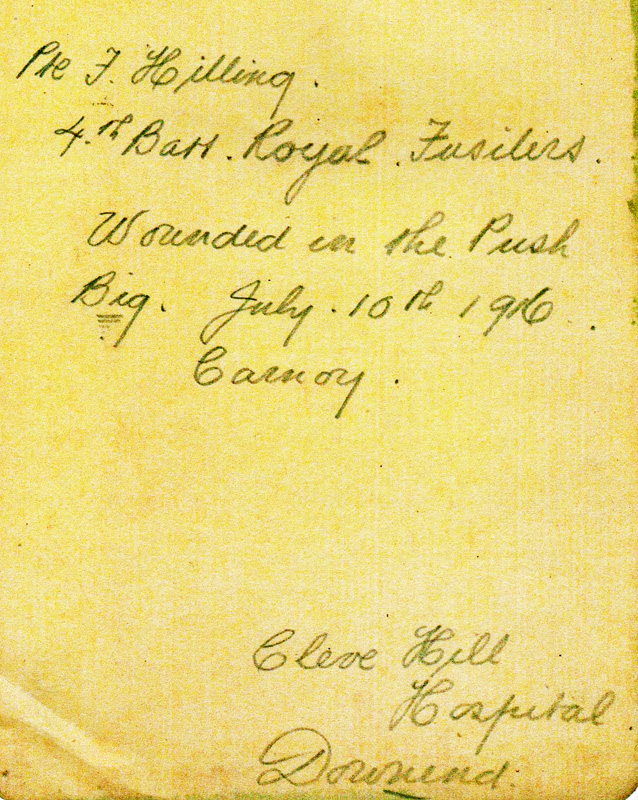 Pte F. Hilling.
4.th Batt. Royal Fusilers.
Wounded in the Push
Big. July. 10th 1916.
Carnoy.
Cleve Hill
Hospital
Downend.